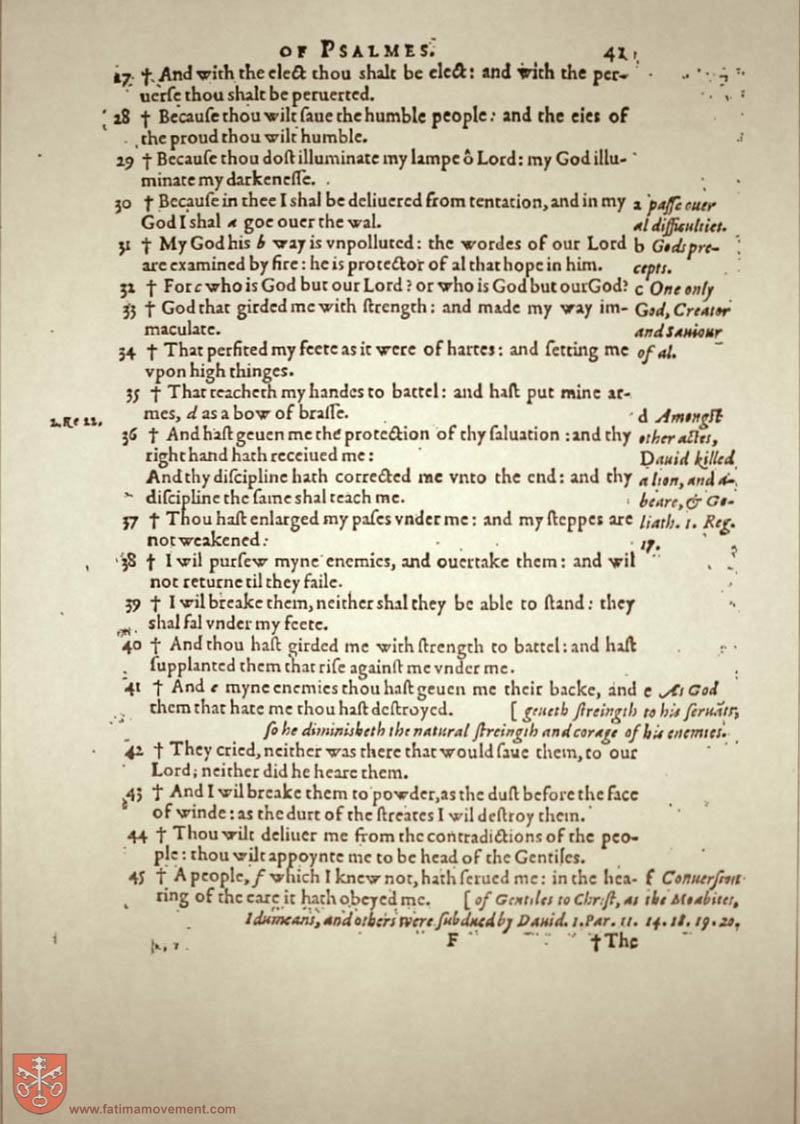 OF PSALMES. 41
27 † And with the elect thou shalt be elect: and with the per-
uerſe thou shalt be peruerted.
28 † Becauſe thou wilt ſaue the humble people: and the eies of
the proud thou wilt humble.
29 † Becauſe thou doſt illuminate my lampe ô Lord: my God illu-
minate my darkeneſſe.
30 † Becauſe in thee I shal be deliuered from tentation, and in my
God I shal a goe ouer the wal.
a paſſe ouer
al difficulties.
31 † My God his b way is vnpolluted: the wordes of our Lord
are examined by fire: he is protector of al that hope in him.
b Gods pre-
cepts.
32 † For c who is God but our Lord? or who is God but our God?
33 † God that girded me with ſtrength: and made my way im-
maculate.
c One only
God, Creator
and Sauiour
of al.
34 † That perfited my feete as it were of hartes: and ſetting me
vpon high thinges.
35 † That teacheth my handes to battel: and haſt put mine ar-
mes, d as a bow of braſſe.
2. Re 22.
36 † And haſt geuen me the protection of thy ſaluation: and thy
right hand hath receiued me:
And thy diſcipline hath corrected me vnto the end: and thy
diſcipline the ſame shal teach me.
37 † Thou haſt enlarged my paſes vnder me: and my ſteppes are
not weakened:
d Amongſt
other actes,
Dauid killed
a lion, and a
beare, & Go-
liath. 1. Reg.
17.
38 † I wil purſew myne enemies, and ouertake them: and wil
not returne til they faile.
39 † I wil breake them, neither shal they be able to ſtand: they
shal fal vnder my feete.
40 † And thou haſt girded me with ſtrength to battel: and haſt
ſupplanted them that riſe againſt me vnder me.
41 † And e myne enemies thou haſt geuen me their backe, and
them that hate me thou haſt deſtroyed.
e As God
[ geueth ſtreingth to his ſeruāts,
ſo he diminisheth the natural ſtreingth and corage of his enemies.
42 † They cried, neither was there that would ſaue them, to our
Lord; neither did he heare them.
43 † And I wil breake them to powder, as the duſt before the face
of winde: as the durt of the ſtreates I wil deſtroy them.
44 † Thou wilt deliuer me from the contradictions of the peo-
ple: thou wilt appoynte me to be head of the Gentiles.
45 † A people, f which I knew not, hath ſerued me: in the hea-
ring of the eare it hath obeyed me.
f Conuerſion
[ of Gentiles to Chriſt, as the Moabites,
Idumeans, and others were ſubdued by Dauid. 1. Par. 11. 14. 18. 19. 20.
F †The
www.fatimamovement.com